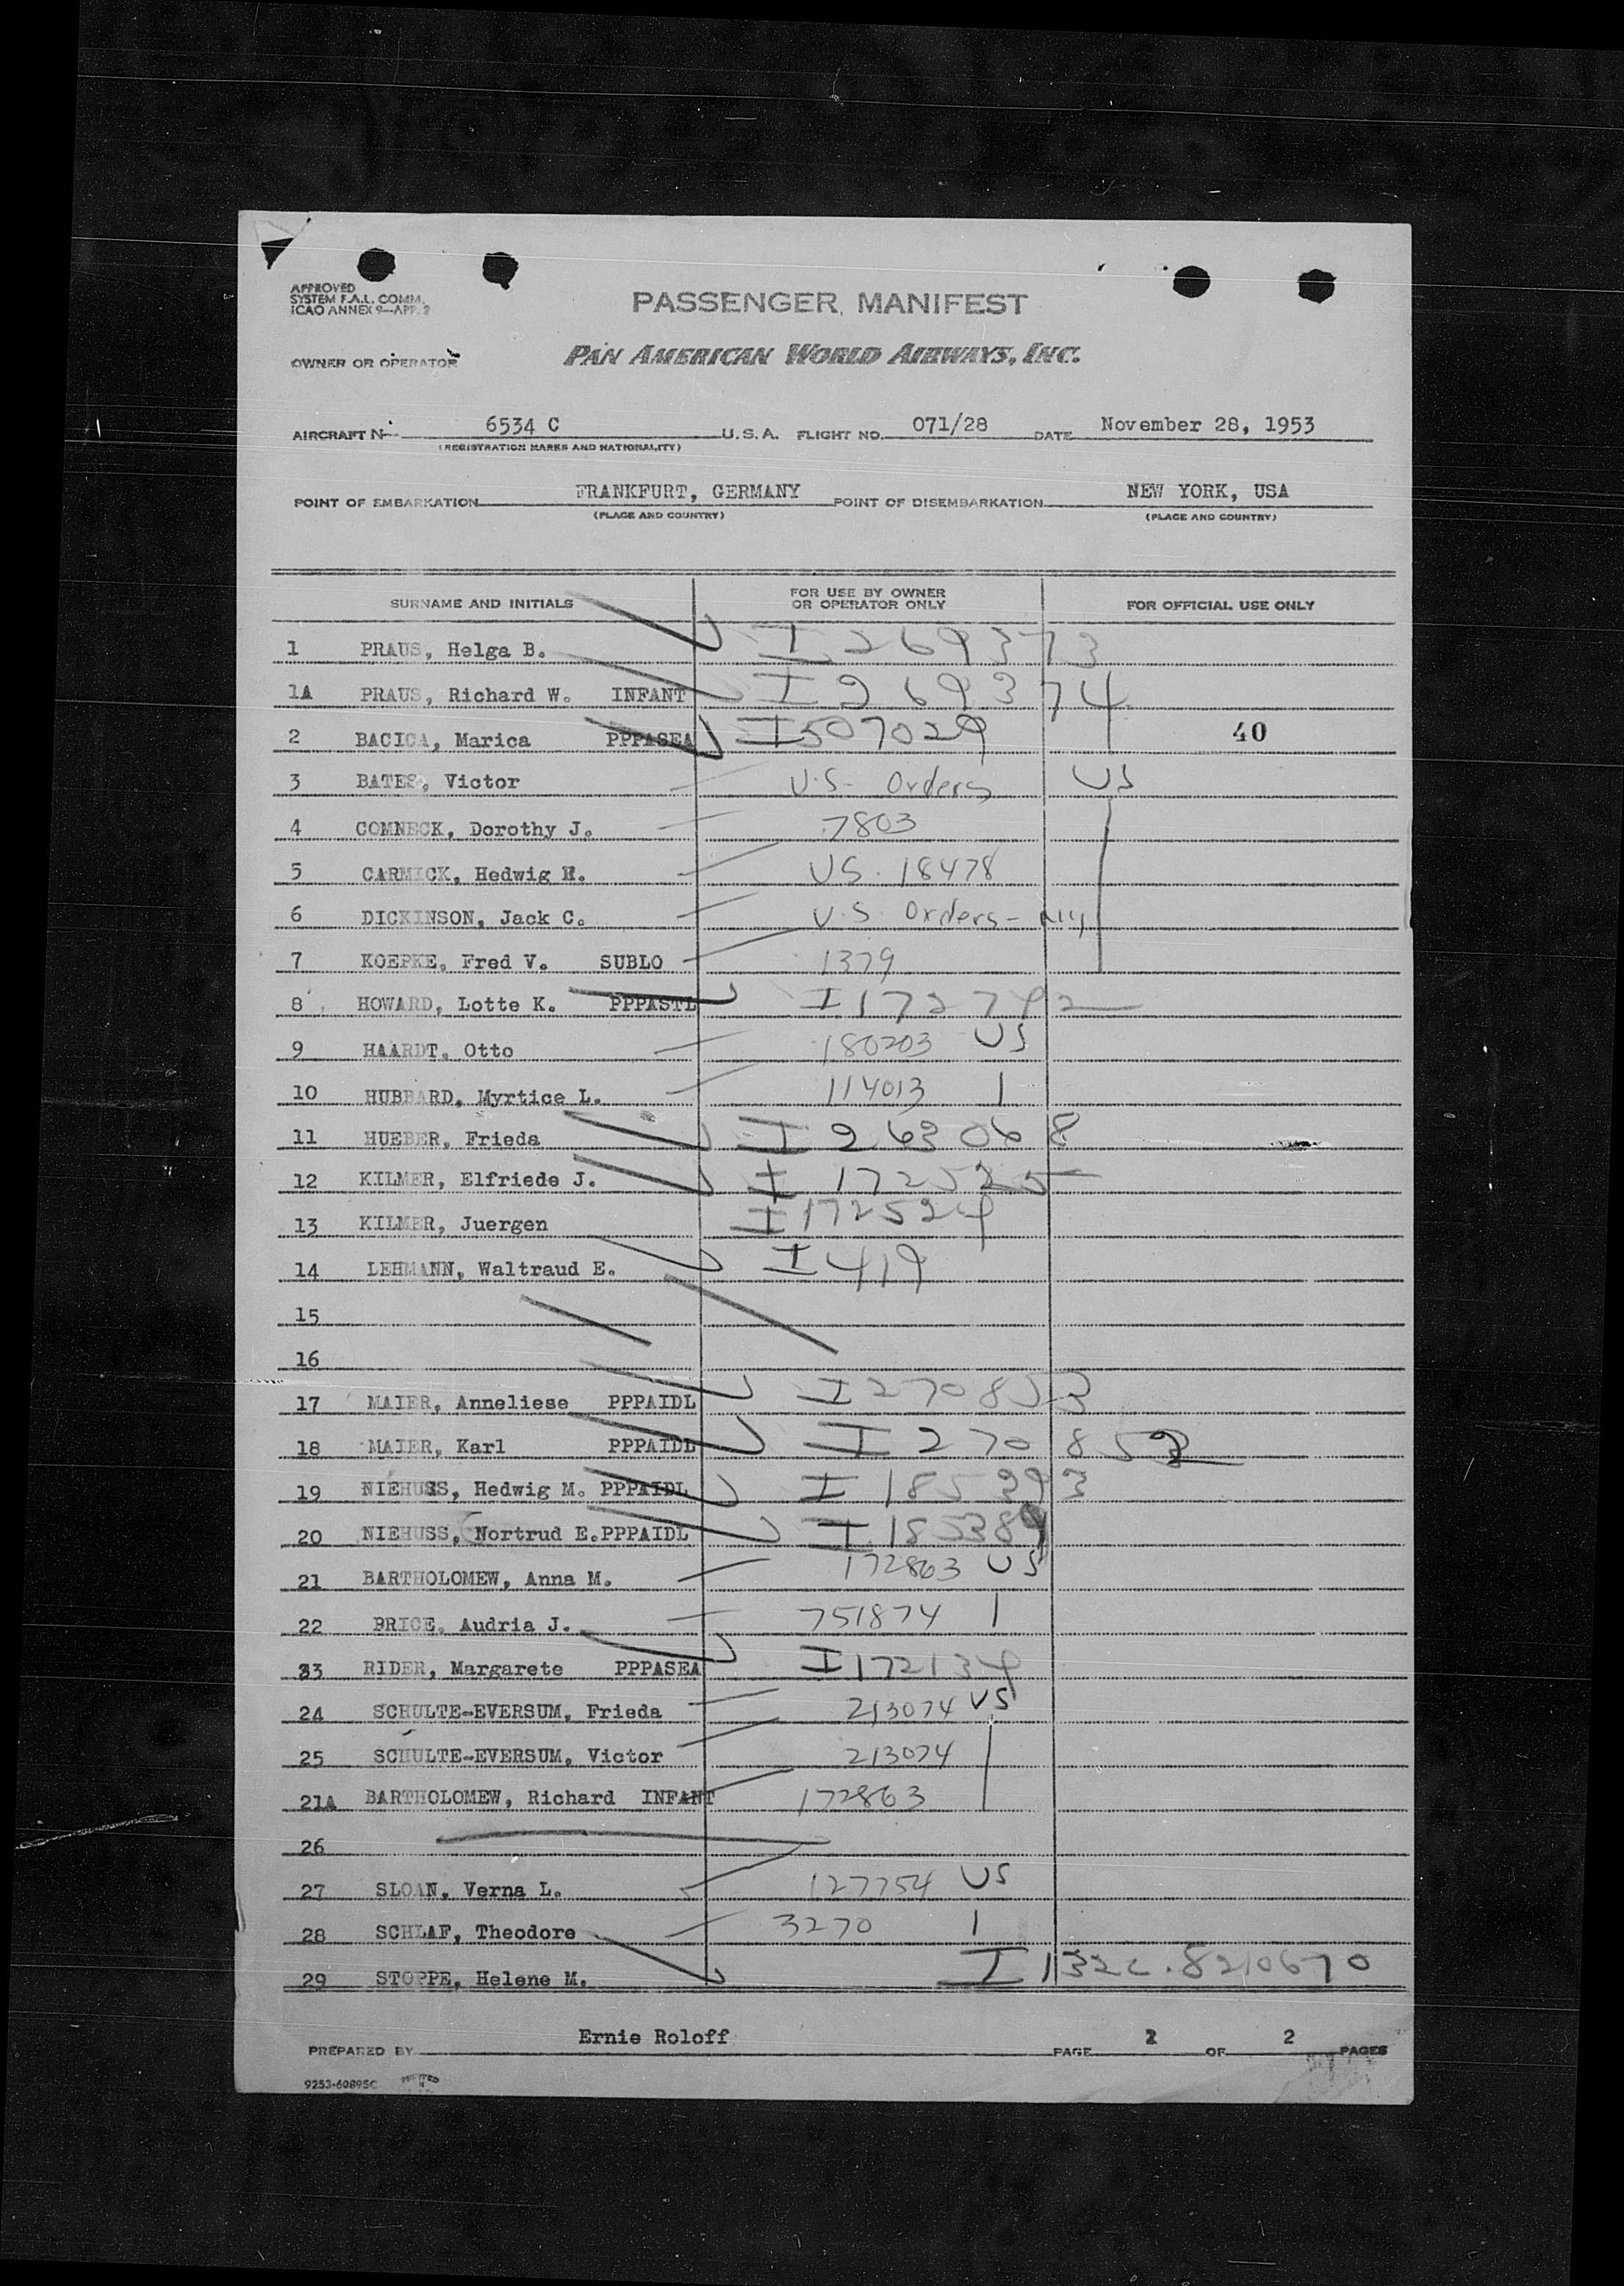 APPROVED
SYSTEM F.A.L. COMM.
ICAO ANNEX 9—APP. 2
PASSENGER MANIFEST
OWNER OR OPERATOR PAN AMERICAN WORLD AIRWAYS, INC.
AIRCRAFT N 6534 C U.S.A. FLIGHT NO. 071/28 DATE November 28, 1953
(REGISTRATION MARKS AND NATIONALITY)
POINT OF EMBARKATION FRANKFURT, GERMANY POINT OF DISEMBARKATION NEW YORK, USA
(PLACE AND COUNTRY) (PLACE AND COUNTRY)
SURNAME AND INITIALS FOR USE BY OWNER OR OPERATOR ONLY FOR OFFICIAL USE ONLY
1 PRAUS, Helga B. I 269373
1A PRAUS, Richard W. INFANT I 269374
2 BACICA, Marica PPPASEA I 507029 40
3 BATES, Victor U.S- Orders US
4 COMNECK, Dorothy J. 7803
5 CARMICK, Hedwig H. US. 18478
6 DICKINSON, Jack C. U.S. Orders-
7 KOEPKE, Fred V. SUBLO 1379
8 HOWARD, Lotte K. PPPASTL I 172792
9 HAARDT, Otto 180203 US
10 HUBBARD, Myrtice L. 114013 |
11 HUEBER, Frieda I 263068
12 KILMER, Elfriede J. I 172525
13 KILMER, Juergen I 172524
14 LEHMANN, Waltraud E. I 419
15
16
17 MAIER, Anneliese PPPAIDL I 270853
18 MAIER, Karl PPPAIDL I 270852
19 NIEHUSS, Hedwig M. PPPAIDL I 185393
20 NIEHUSS, Nortrud E. PPPAIDL I 185389
21 BARTHOLOMEW, Anna M. 172863 US
22 BRICE, Audria J. 751874 |
23 RIDER, Margarete PPPASEA I 172134
24 SCHULTE-EVERSUM, Frieda 213074 US
25 SCHULTE-EVERSUM, Victor 213074
21A BARTHOLOMEW, Richard INFANT 172863
26
27 SLOAN, Verna L. 127754 US
28 SCHLAF, Theodore 3270 |
29 STOPPE, Helene M. I 132c.8210670
PREPARED BY Ernie Roloff PAGE 2 OF 2 PAGES
9253-60895C